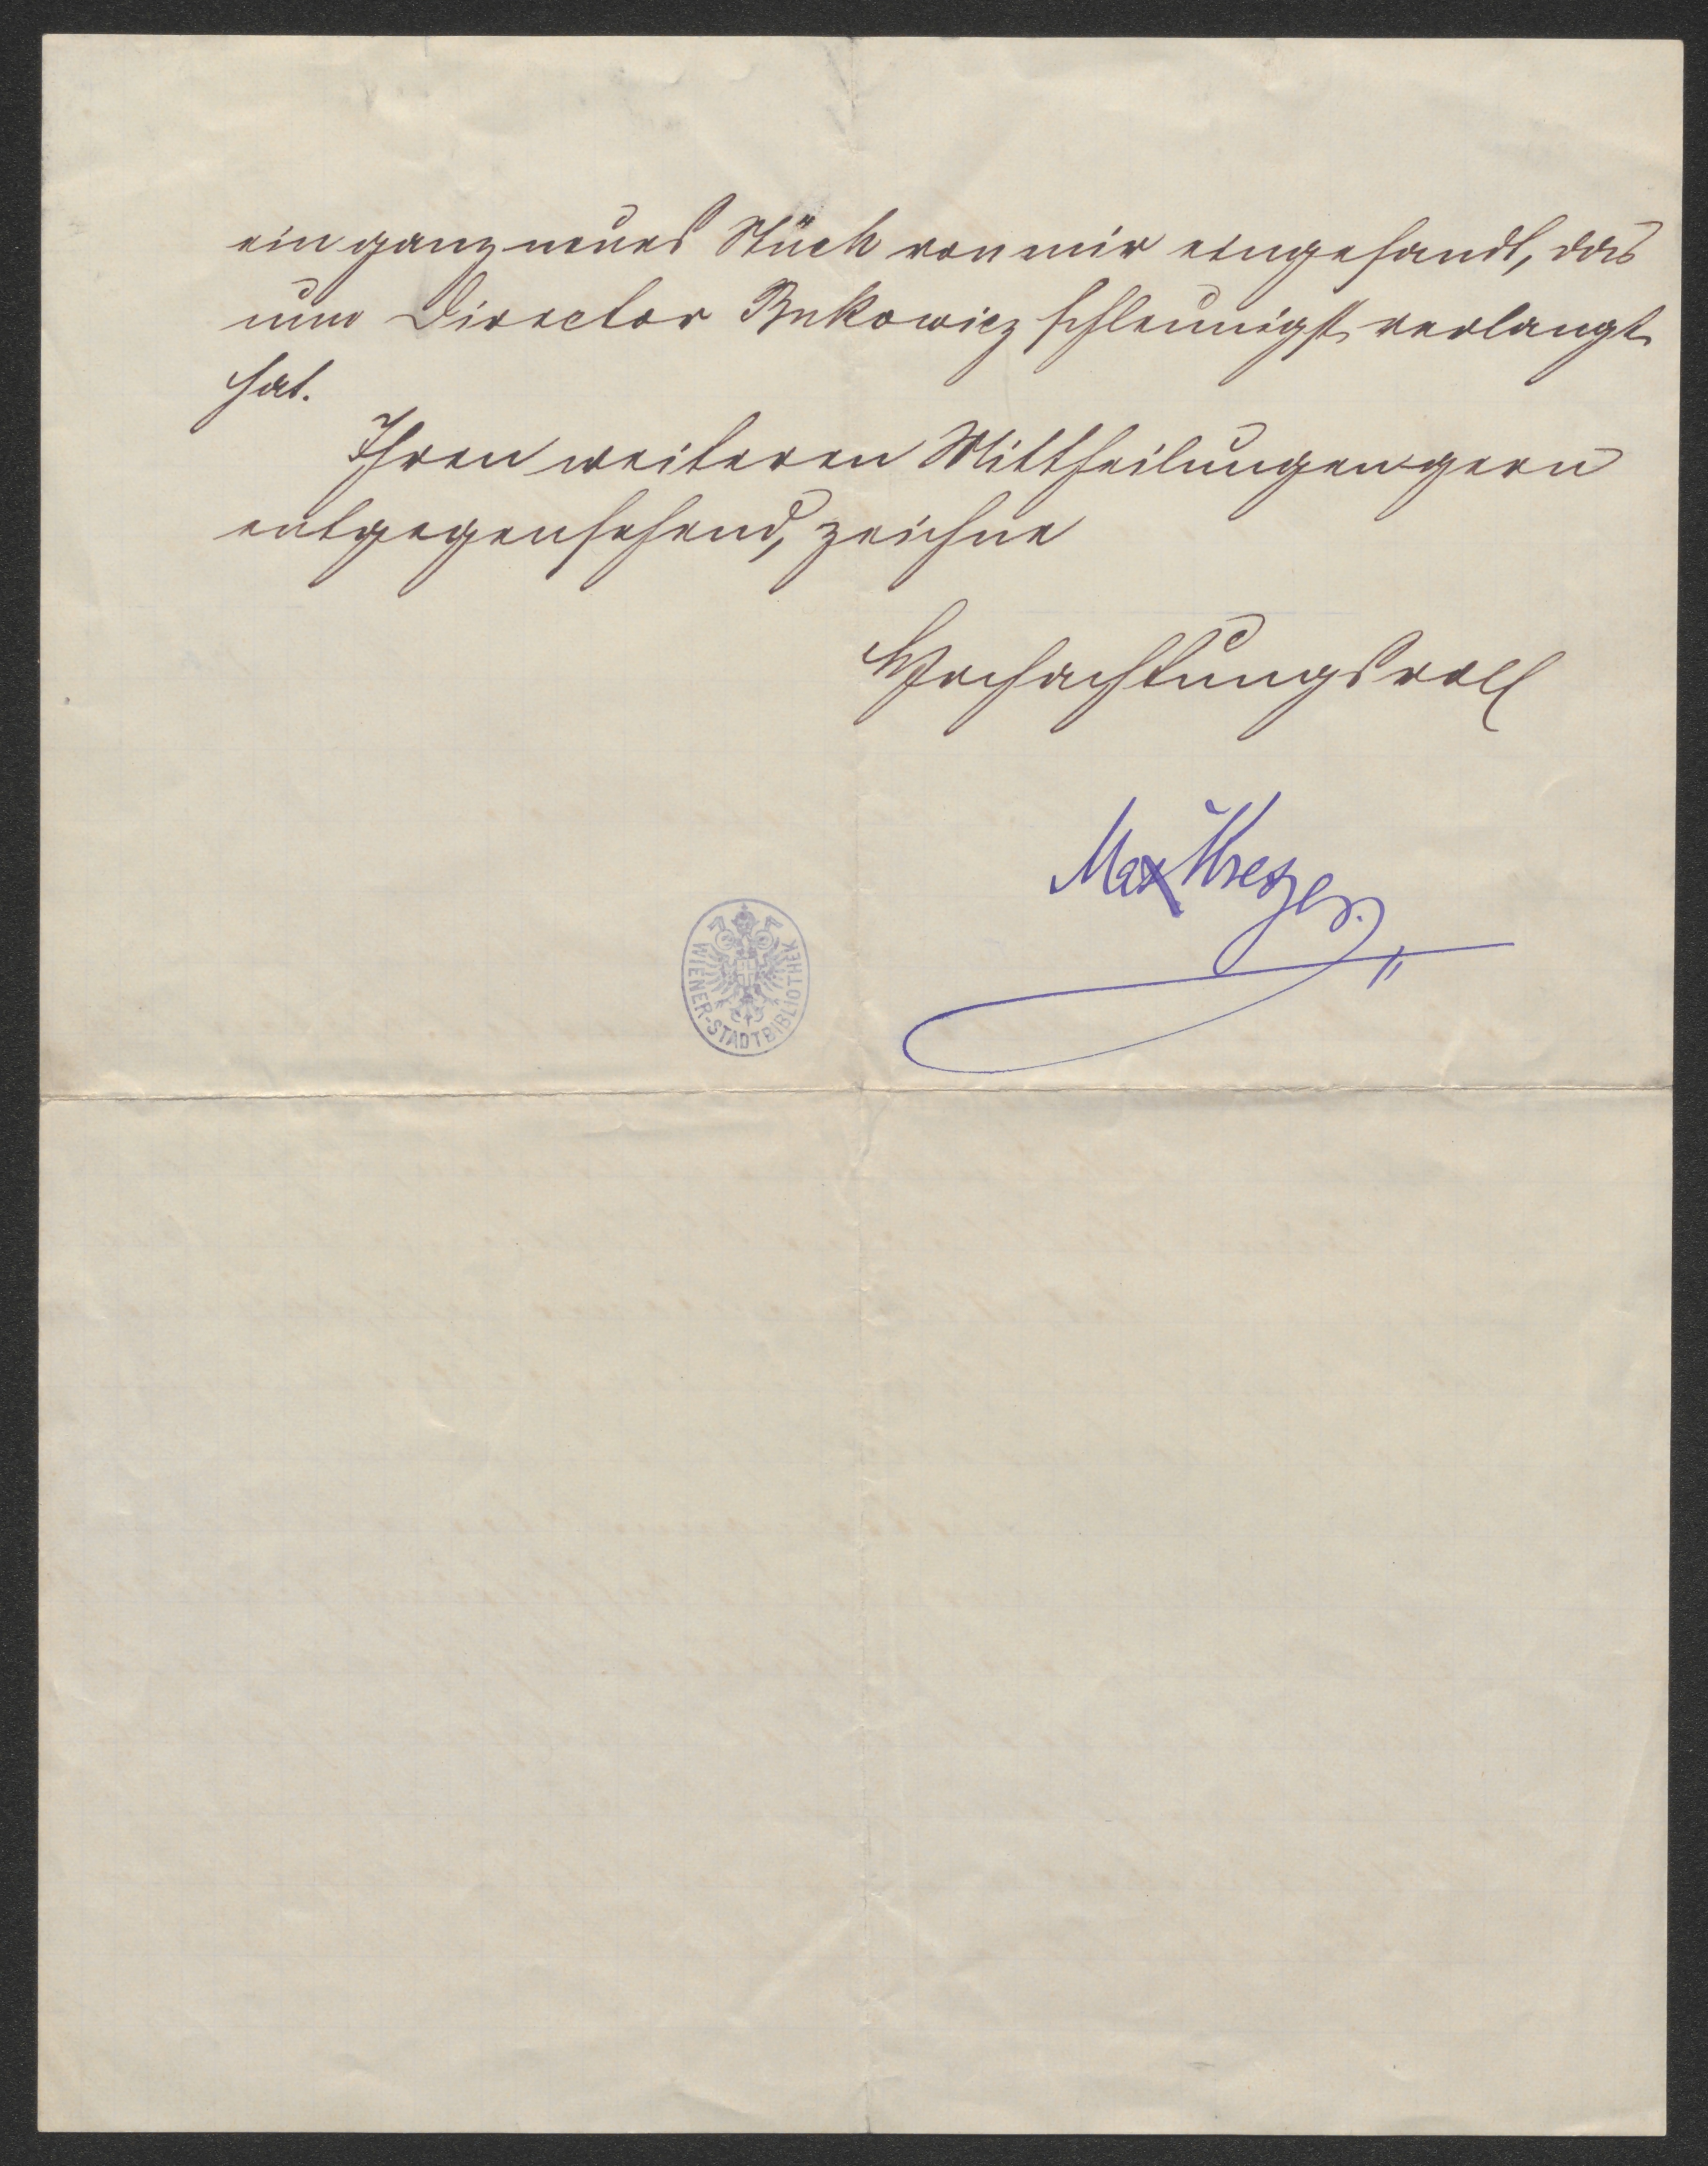 ein ganz neues Stück von mir eingesandt, das
nun Director Bukowicz schleunigst verlangt
hat.
Ihren weiteren Mittheilungen gern
entgegensehend, zeichne
Hochachtungsvoll
Max Kretzer.
WIENER-STADTBIBLIOTHEK